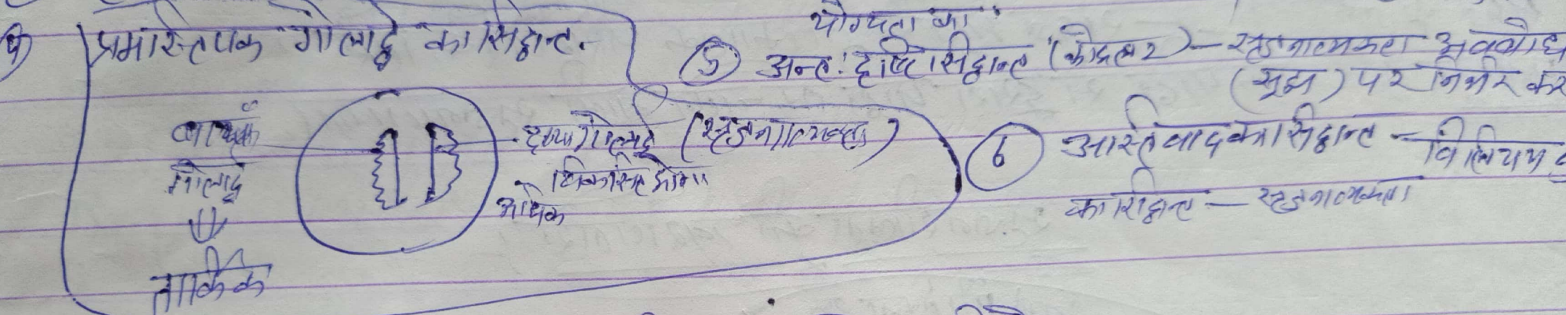 ४) प्रमास्तिष्क गोलार्द्ध का सिद्धान्त.
बायाँ
गोलार्द्ध
⇓
तार्किक
दायाँ गोलार्द्ध (सृजनात्मकता)
विकसित होगा
अधिक
योग्यता का
⑤ अन्तः दृष्टि सिद्धान्त (कोहलर) – सृजनात्मकता अवबोध
(सूझ) पर निर्भर कर
⑥ अस्तित्ववाद का सिद्धान्त – विलियम
का सिद्धान्त – सृजनात्मकता